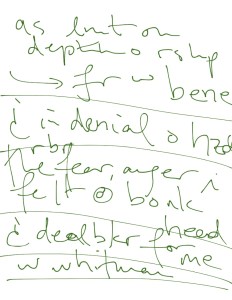 as limit on
depth o rship
→ for w bene
i = denial o hzd
the fear, anger i
felt @ bank
i dealbkr
for me
w whitman